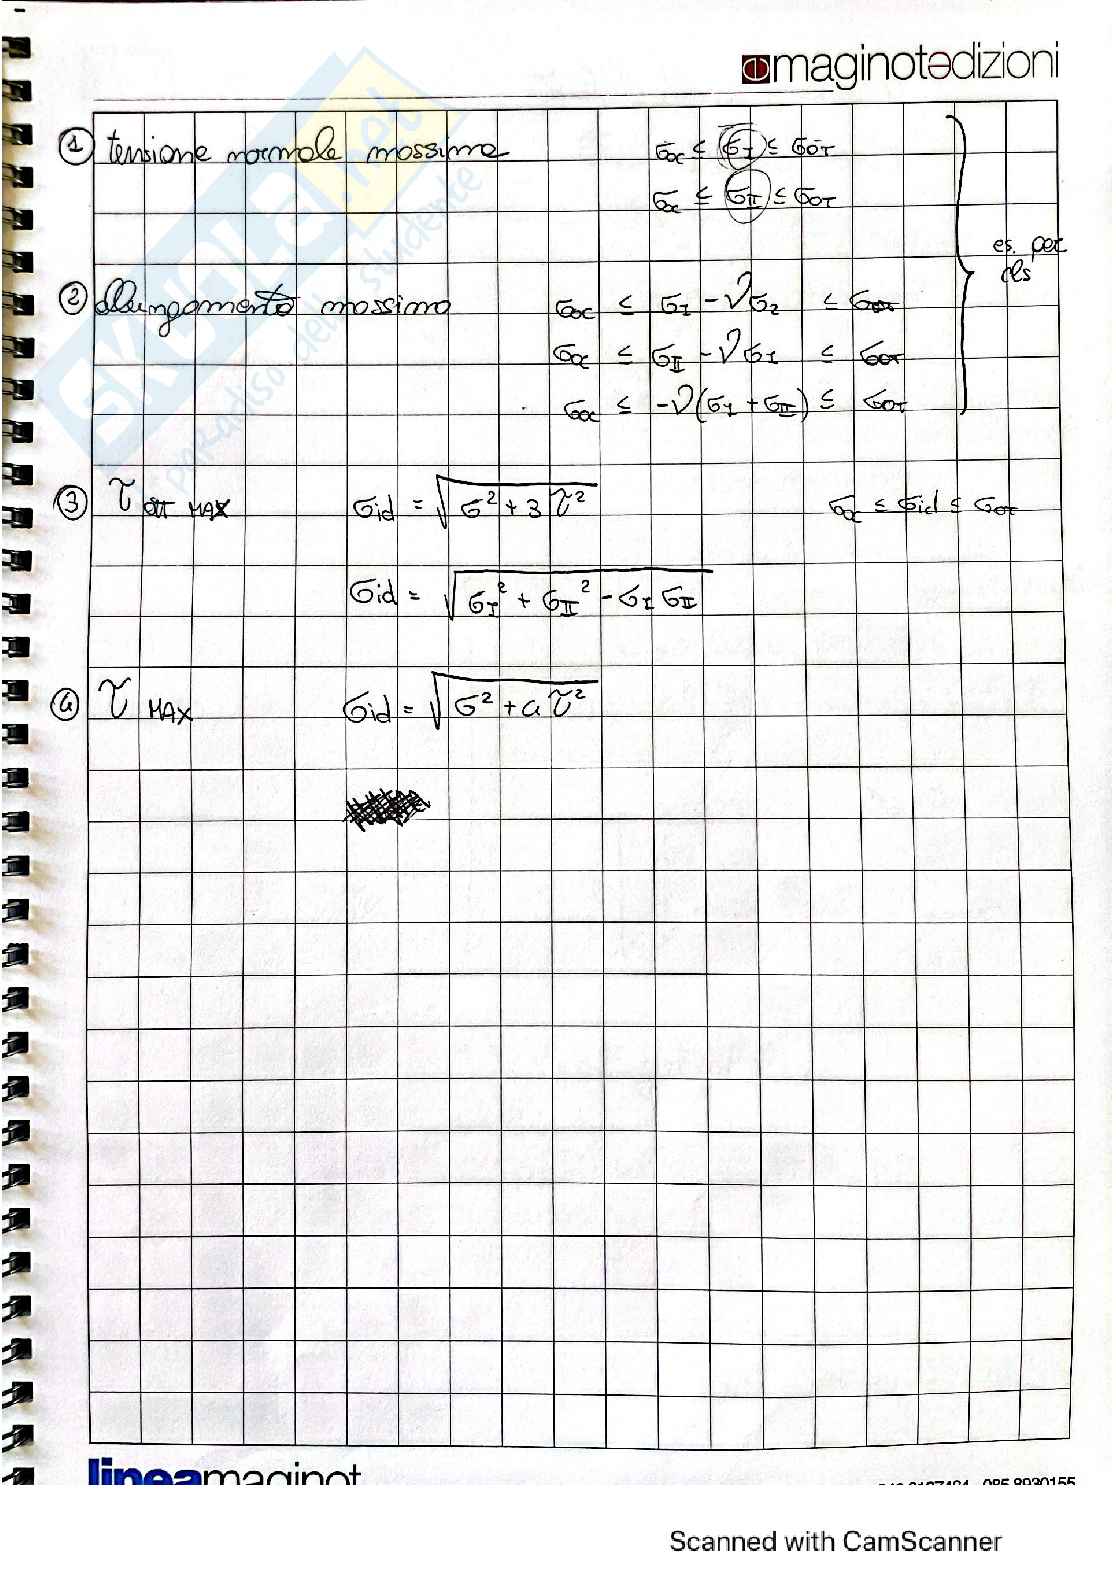 maginotedizioni
① tensione normale massima σ₀c ≤ σ_I ≤ σ₀T
σ₀c ≤ σ_II ≤ σ₀T
es. per
cls
② allungamento massimo σ₀c ≤ σ_I - νσ₂ ≤ σ₀T
σ₀c ≤ σ_II - νσ_I ≤ σ₀T
σ₀c ≤ -ν(σ_I + σ_II) ≤ σ₀T
③ τ ott MAX σid = √(σ² + 3τ²) σ₀c ≤ σid ≤ σ₀T
σid = √(σ_I² + σ_II² - σ_I σ_II)
④ τ MAX σid = √(σ² + 4τ²)
SKUOLA.net
paradiso dello studente
lineamaginot
085 8930155
Scanned with CamScanner